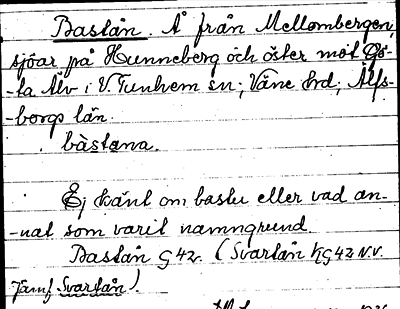 Bastån. Å från Mellombergen,
sjöar på Hunneberg och öster mot Gö-
-ta Älv i V. Tunhem sn; Väne hrd; Älfs-
-borgs län.
båstana.
Ej känt om bastu eller vad an-
-nat som varit namngrund.
Bastån G 42. (Svartån KG 42 N.V.
Jämf Svartån).